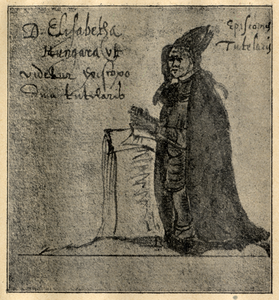 D. Elisabetha
Hungara ut
videtur Episcopo
Dua tutelaris
Episcopus
Tutelaris